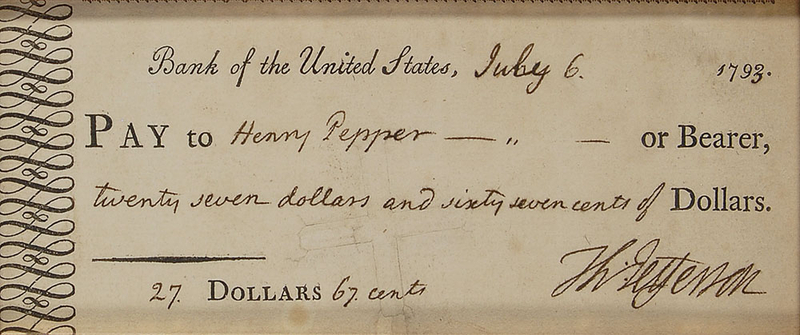 Bank of the United States, July 6. 1793.
PAY to Henry Pepper — „ — or Bearer,
twenty seven dollars and sixty seven cents of Dollars.
27. DOLLARS 67. cents Th: Jefferson